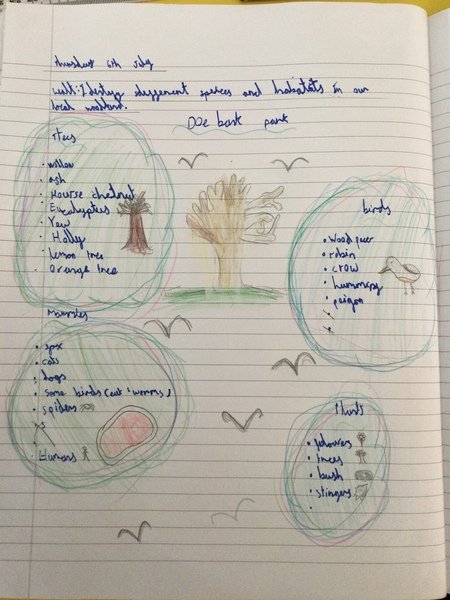 thursday 6th July
walt: Identify dyfferent speices and habitats in our
local woodland.
Doe bark park
trees
• willow
• ash
• Hourse chestnut
• Eucalyptus
• Yew
• Holly
• Lemon tree
• Orange tree
birds
• Wood peer
• robin
• crow
• humming
• peigon
• fox
• cats
• dogs
• Some birds (eat worms)
• spiders
• s
• Humans
Plants
• flowers
• trees
• bush
• stingers